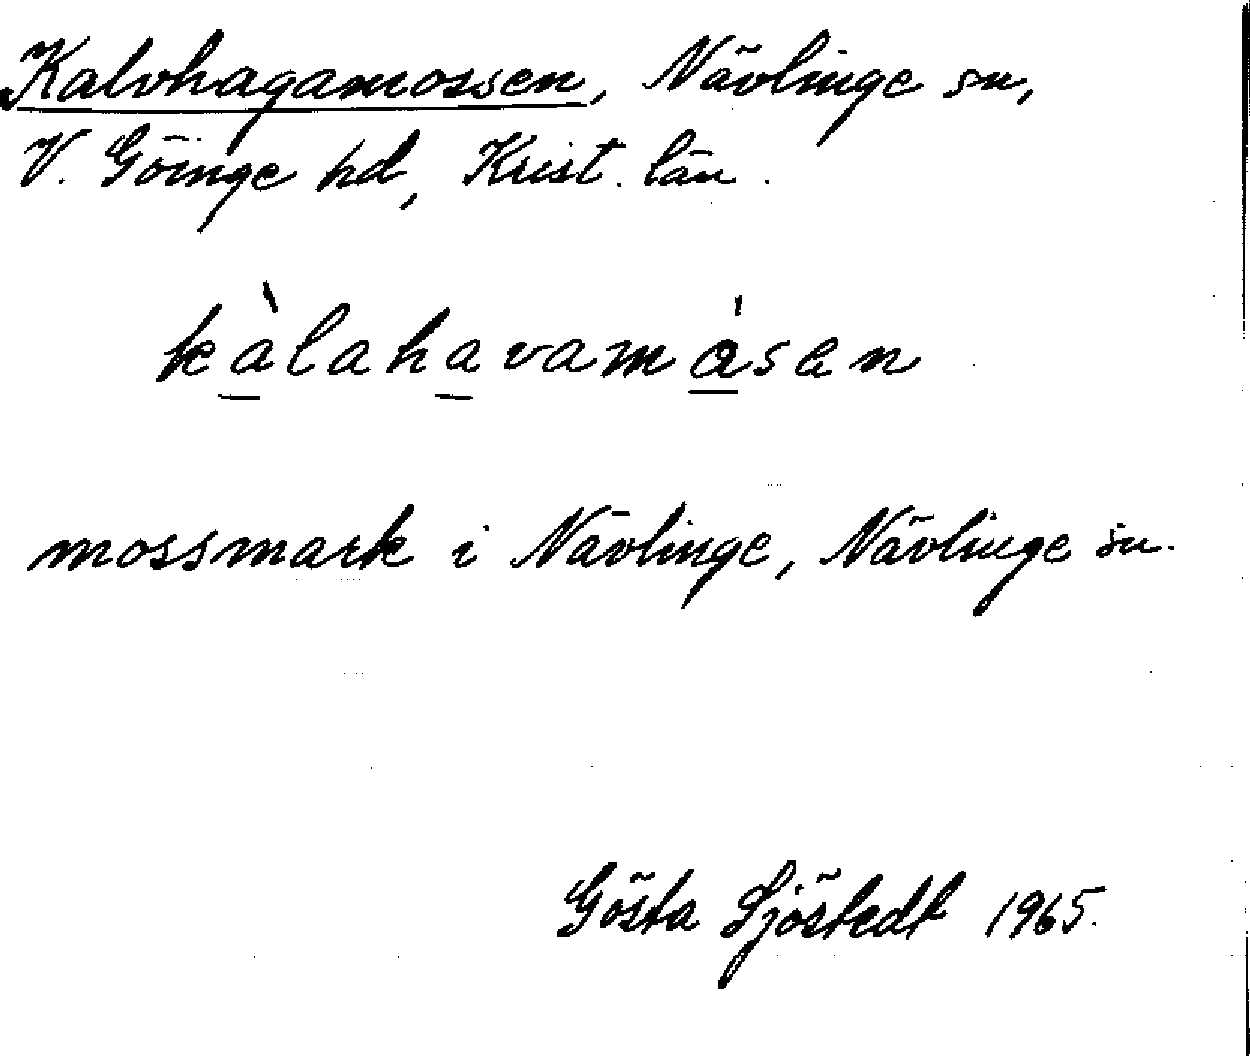 Kalvhagamossen, Nävlinge sn,
V. Göinge hd, Krist. län.
kàlahavamåsen
mossmark i Nävlinge, Nävlinge sn.
Gösta Sjöstedt 1965.